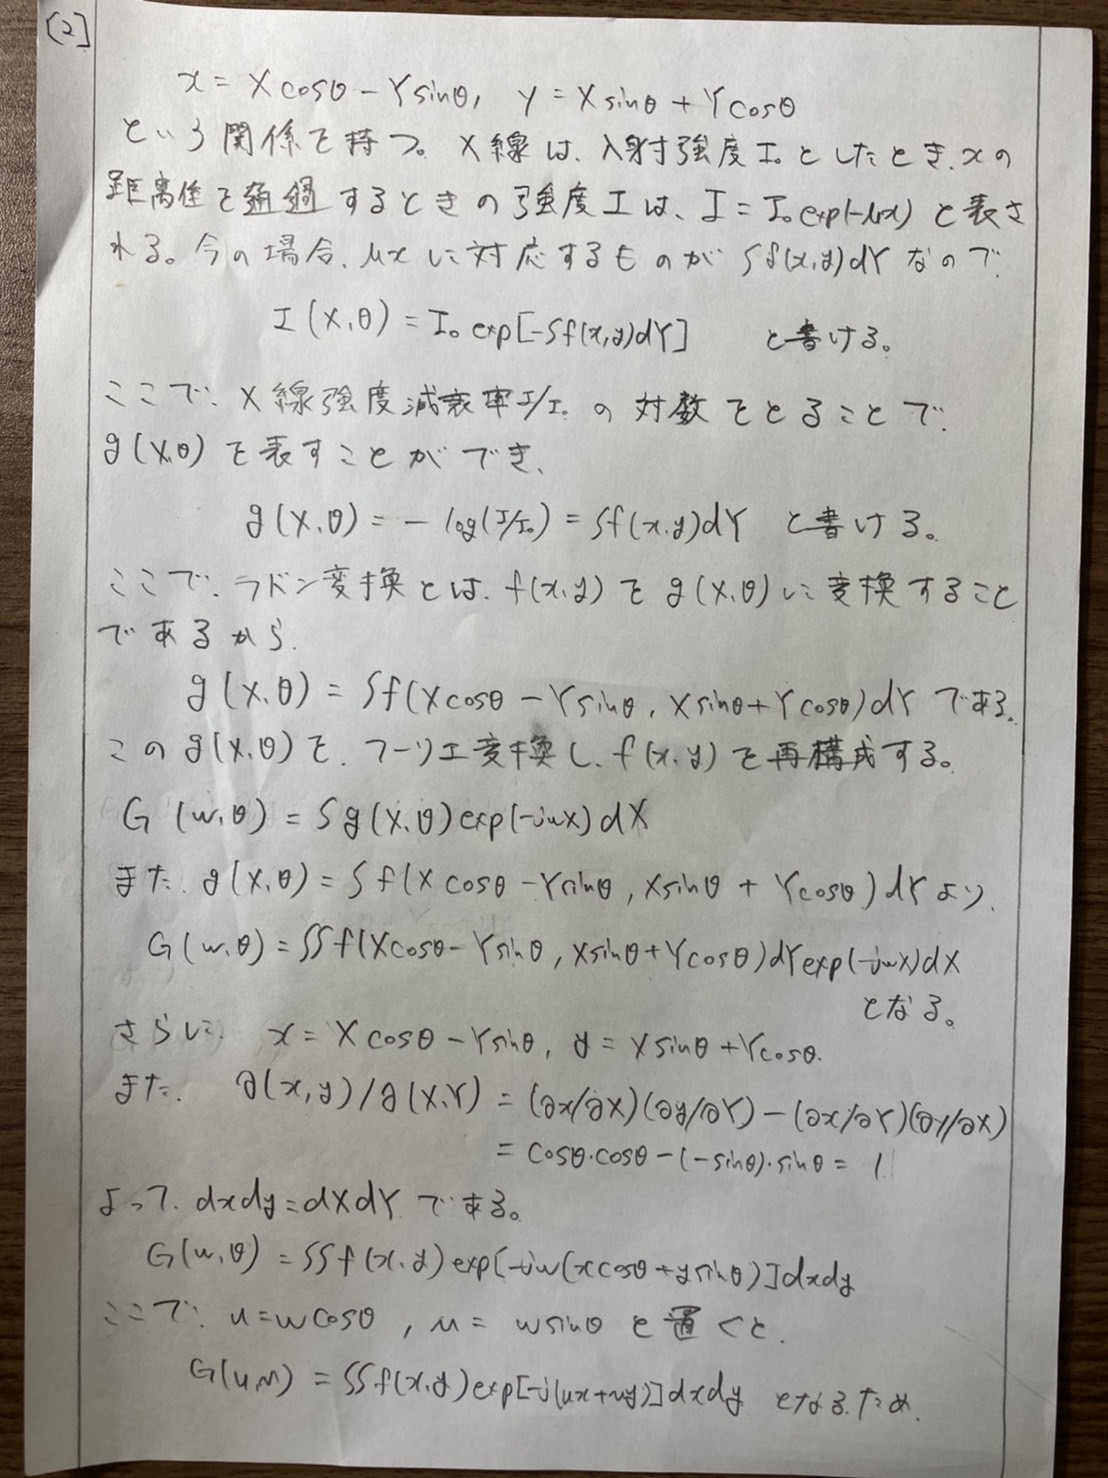 [2]
x = Xcosθ - Ysinθ, y = Xsinθ + Ycosθ
という関係を持つ。X線は、入射強度I₀としたとき、xの
距離を通過するときの強度Iは、I = I₀exp(-μx) と表さ
れる。今の場合、μxに対応するものが ∫f(x,y)dY なので、
I(X,θ) = I₀ exp[-∫f(x,y)dY] と書ける。
ここで、X線強度減衰率I/I₀ の対数をとることで、
g(X,θ) を表すことができ、
g(X,θ) = - log(I/I₀) = ∫f(x,y)dY と書ける。
ここで、ラドン変換とは、f(x,y) を g(X,θ) に変換すること
であるから、
g(X,θ) = ∫f(Xcosθ - Ysinθ, Xsinθ + Ycosθ)dY である。
この g(X,θ) を、フーリエ変換し、f(x,y) を再構成する。
G(w,θ) = ∫g(X,θ)exp(-jwX)dX
また、g(X,θ) = ∫f(Xcosθ - Ysinθ, Xsinθ + Ycosθ)dY より、
G(w,θ) = ∫∫f(Xcosθ - Ysinθ, Xsinθ + Ycosθ)dYexp(-jwX)dX
となる。
さらに、x = Xcosθ - Ysinθ, y = Xsinθ + Ycosθ.
また、∂(x,y)/∂(X,Y) = (∂x/∂X)(∂y/∂Y) - (∂x/∂Y)(∂y/∂X)
= cosθ・cosθ - (-sinθ)・sinθ = 1
よって、dxdy = dXdY である。
G(w,θ) = ∫∫f(x,y)exp[-jw(xcosθ + ysinθ)]dxdy
ここで、u = wcosθ, v = wsinθ と置くと、
G(u,v) = ∫∫f(x,y)exp[-j(ux + vy)]dxdy となるため、